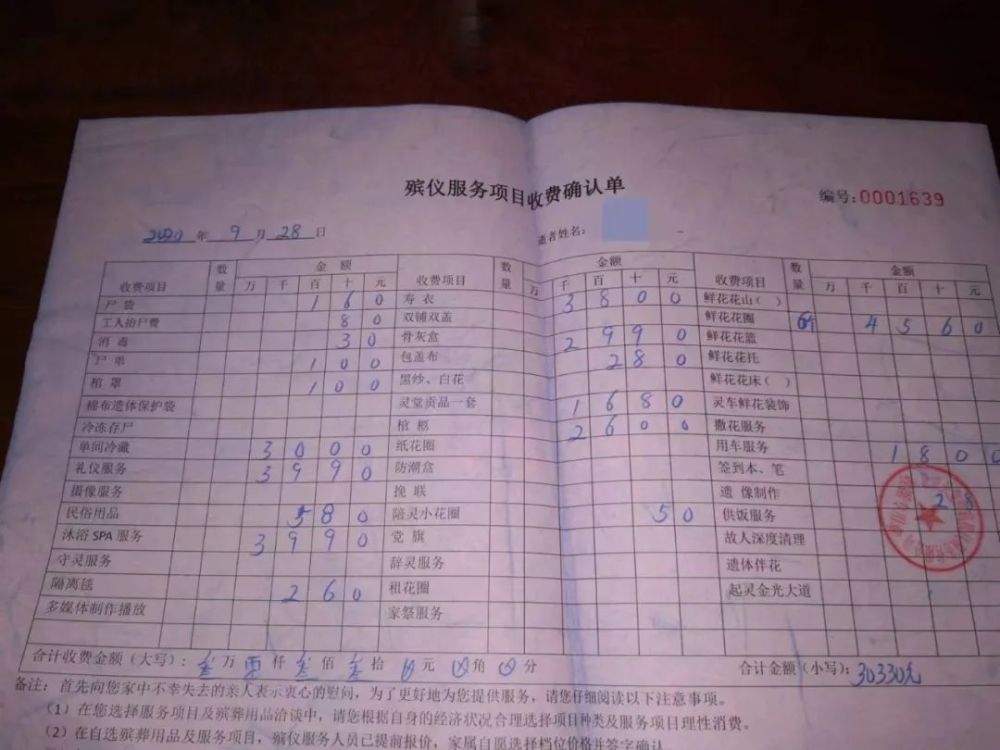 殡仪服务项目收费确认单
编号:0001639
2020年9月28日 逝者姓名:
收费项目 数量 金额 万 千 百 十 元 收费项目 数量 金额 万 千 百 十 元 收费项目 数量 金额 万 千 百 十 元
尸袋 160 寿衣 3800 鲜花花山( )
工人抬尸费 80 双铺双盖 鲜花花圈 4560
消毒 30 骨灰盒 2990 鲜花花篮
尸单 100 包盖布 280 鲜花花托
棺罩 100 黑纱、白花 鲜花花床( )
棉布遗体保护袋 灵堂贡品一套 1680 灵车鲜花装饰
冷冻存尸 棺柩 2600 撒花服务
单间冷藏 3000 纸花圈 用车服务 1800
礼仪服务 3990 防潮盒 签到本、笔
摄像服务 挽联 遗像制作 28
民俗用品 580 陪灵小花圈 50 供饭服务
沐浴SPA服务 3990 党旗 故人深度清理
守灵服务 辞灵服务 遗体伴花
隔离毯 260 租花圈 起灵金光大道
多媒体制作播放 家祭服务
合计收费金额(大写): 叁万零仟叁佰叁拾 元 角 分 合计金额(小写):30330元
备注:首先向您家中不幸失去的亲人表示衷心的慰问,为了更好地为您提供服务,请您仔细阅读以下注意事项。
(1)在您选择服务项目及殡葬用品洽谈中,请您根据自身的经济状况合理选择项目种类及服务项目理性消费。
(2)在自选殡葬用品及服务项目,殡仪服务人员已提前报价,家属自愿选择档位价格并签字确认